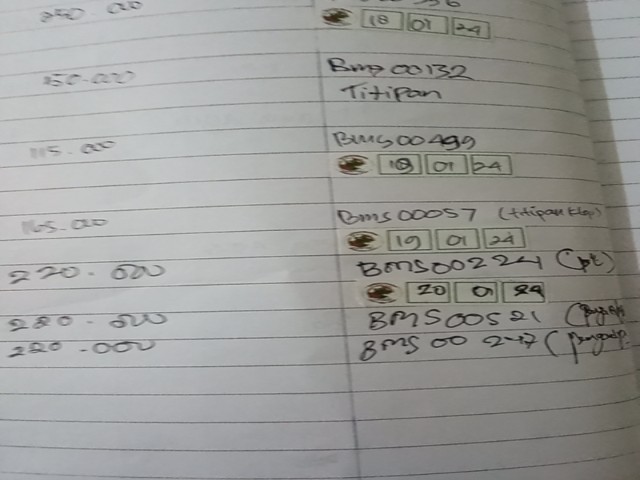 250 000
18 01 24
150.000 BMS 00132
Titipan
115.000 BMS 00499
19 01 24
165.000 BMS 00057 (titipan
19 01 24
220.000 BMS 00224 (pt)
20 01 24
220.000 BMS 00521
220.000 BMS 00 247